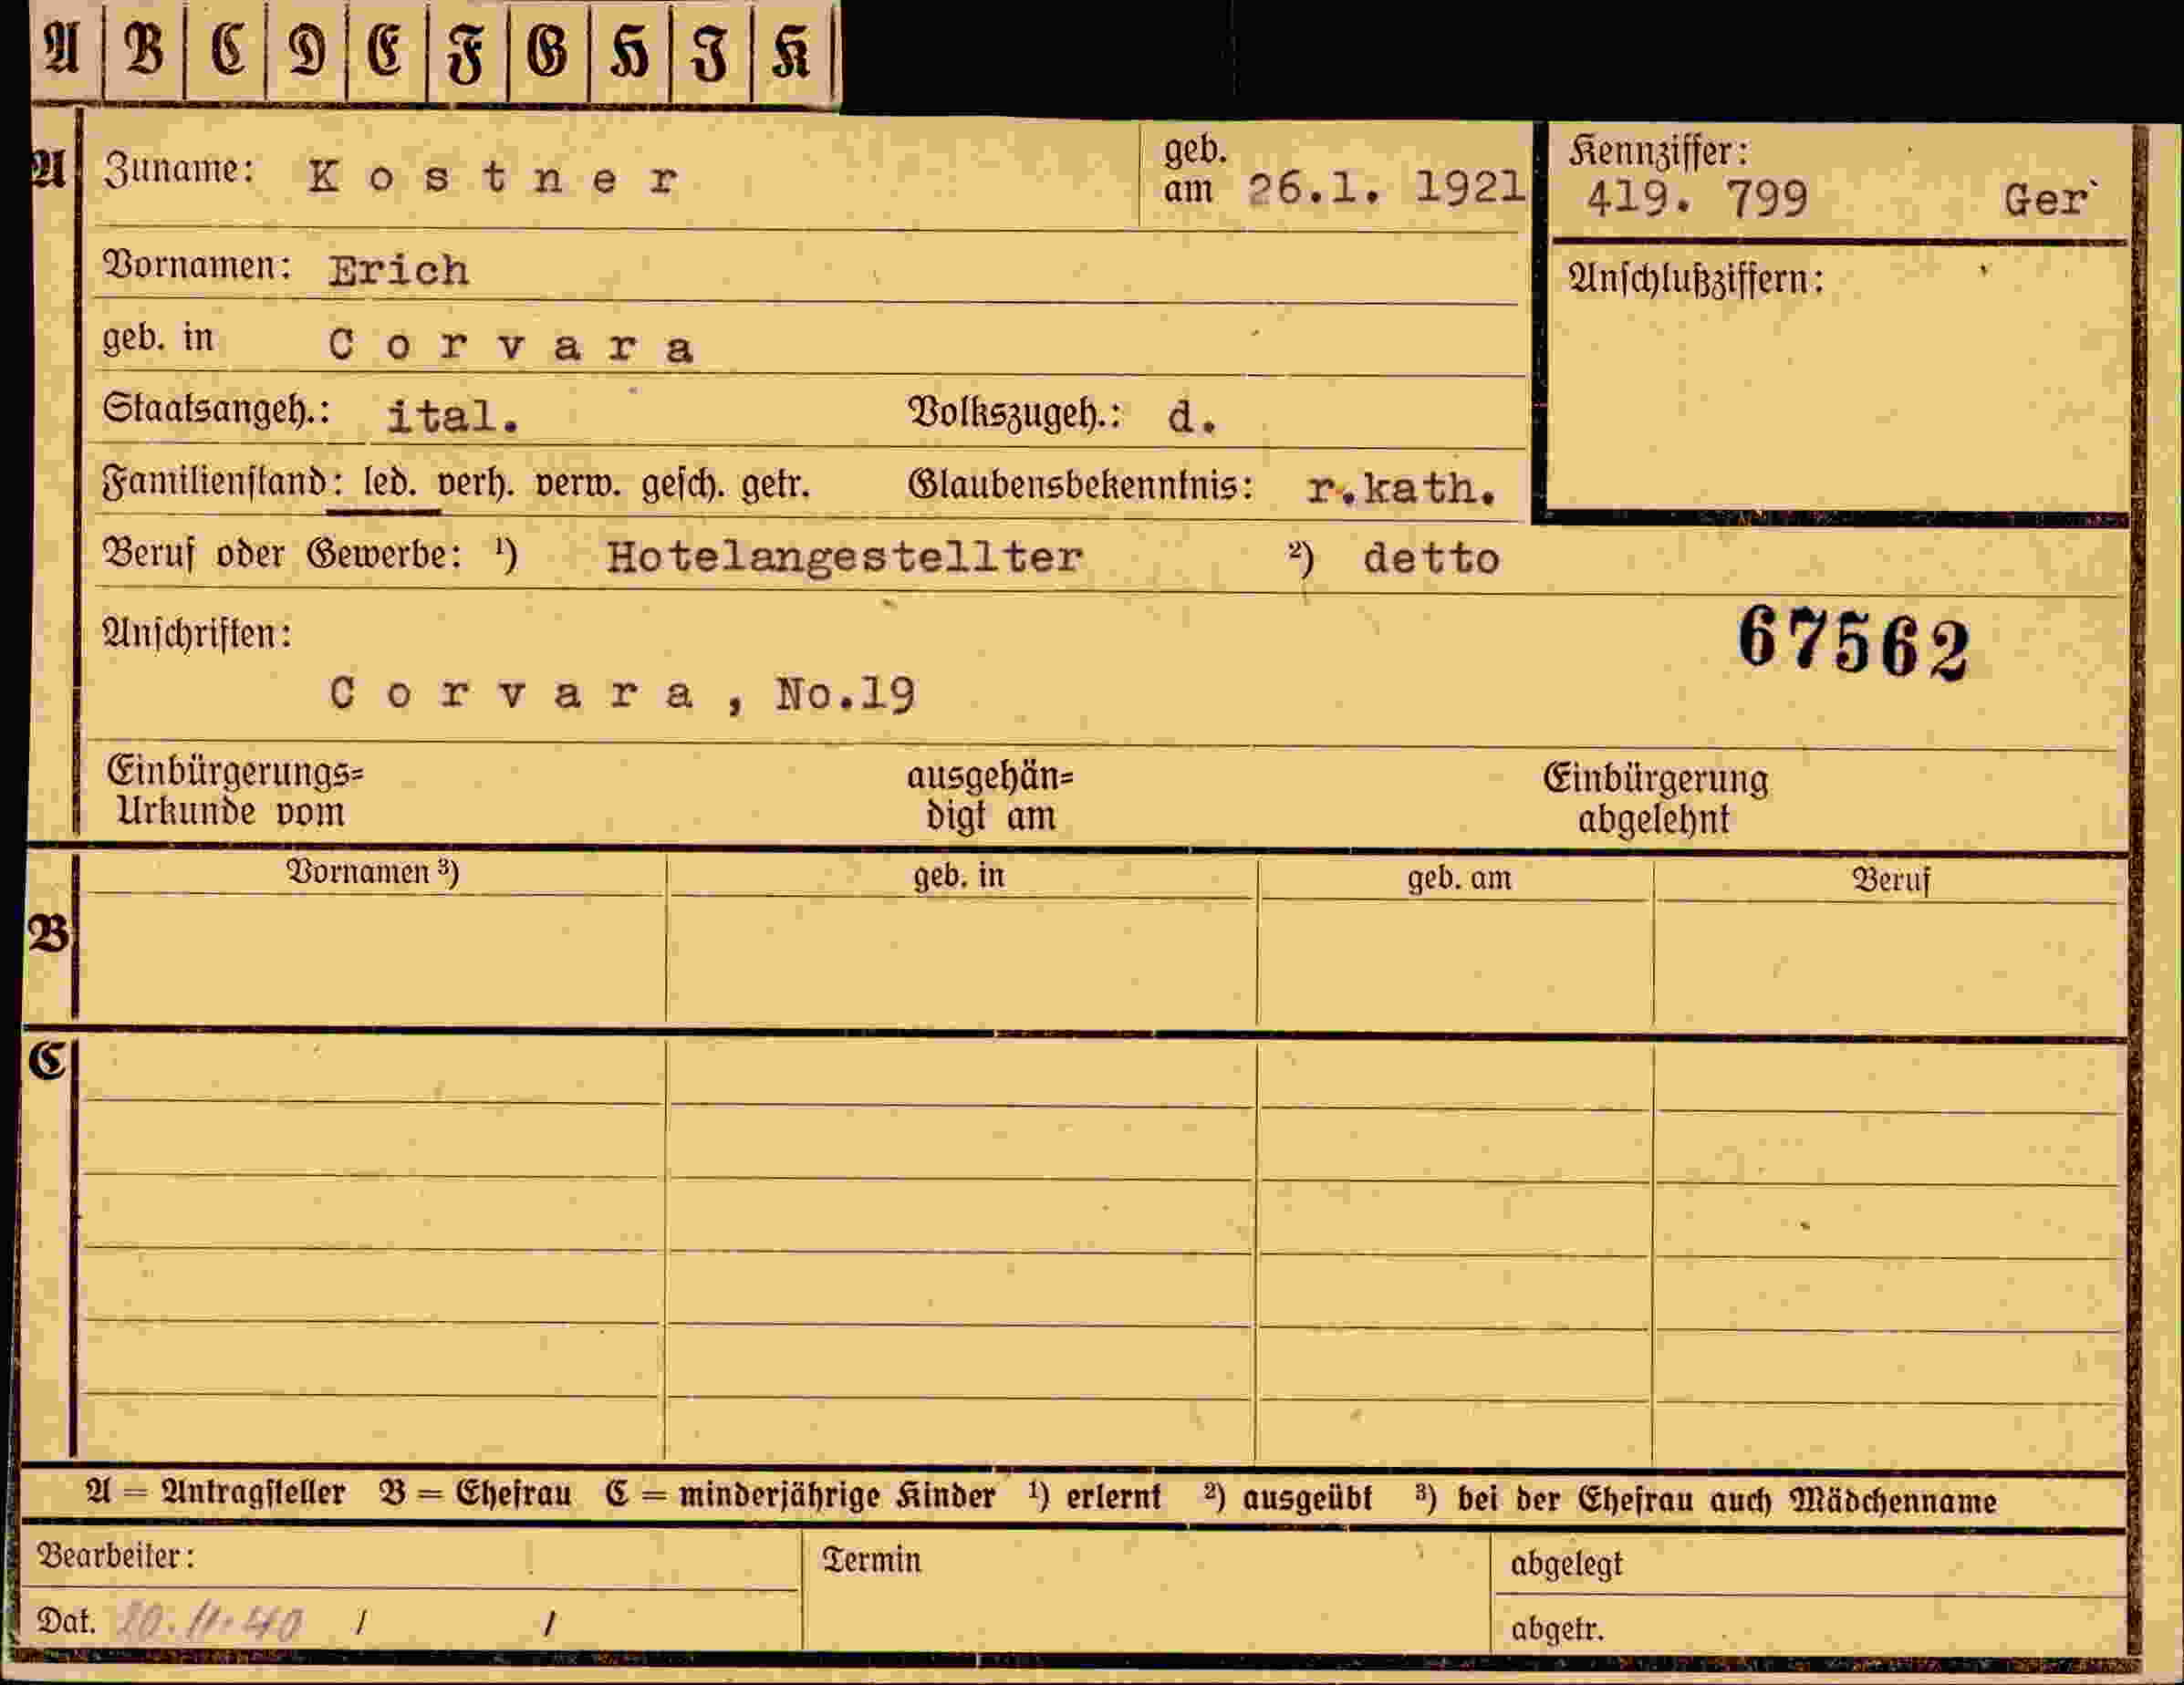 A B C D E F G H J K
A Zuname: Kostner geb. am 26.1. 1921 Kennziffer: 419. 799 Ger
Vornamen: Erich Anschlußziffern:
geb. in Corvara
Staatsangeh.: ital. Volkszugeh.: d.
Familienstand: led. verh. verw. gesch. getr. Glaubensbekenntnis: r.kath.
Beruf oder Gewerbe: ¹) Hotelangestellter ²) detto
Anschriften: 67562
Corvara, No.19
Einbürgerungs= ausgehän= Einbürgerung
Urkunde vom digt am abgelehnt
Vornamen ³) geb. in geb. am Beruf
B
C
A = Antragsteller B = Ehefrau C = minderjährige Kinder ¹) erlernt ²) ausgeübt ³) bei der Ehefrau auch Mädchenname
Bearbeiter: Termin abgelegt
Dat. 20.11.40 / / abgetr.